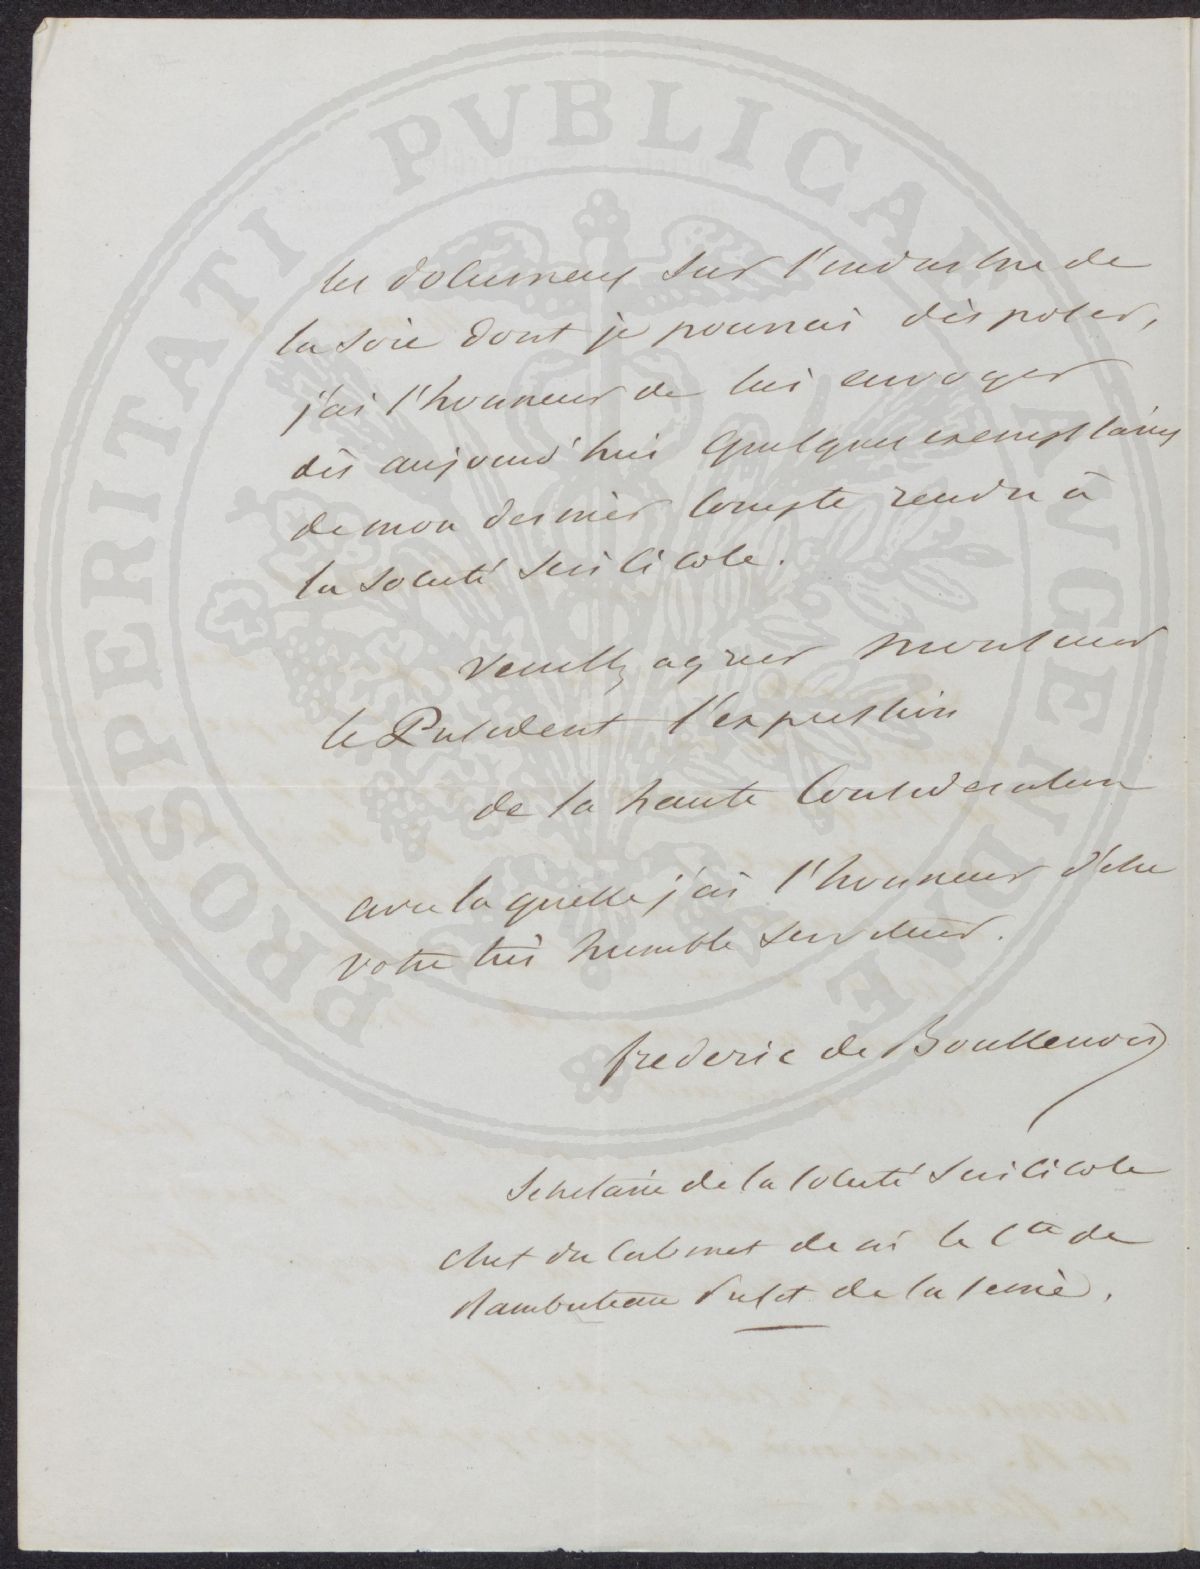 les documens sur l'industrie de
la soie dont je pourrais disposer,
j'ai l'honneur de lui envoyer
dès aujourd'hui quelques exemplaires
de mon dernier compte rendu à
la société sericicole.
veuillez agréer monsieur
le President l'expression
de la haute Consideration
avec laquelle j'ai l'honneur d'être
votre très humble serviteur.
frederic de Boullenois
Secretaire de la société sericicole
chef du Cabinet de M le Cte de
Rambuteau Préfet de la Seine.
PROSPERITATI PVBLICAE AVGENDAE